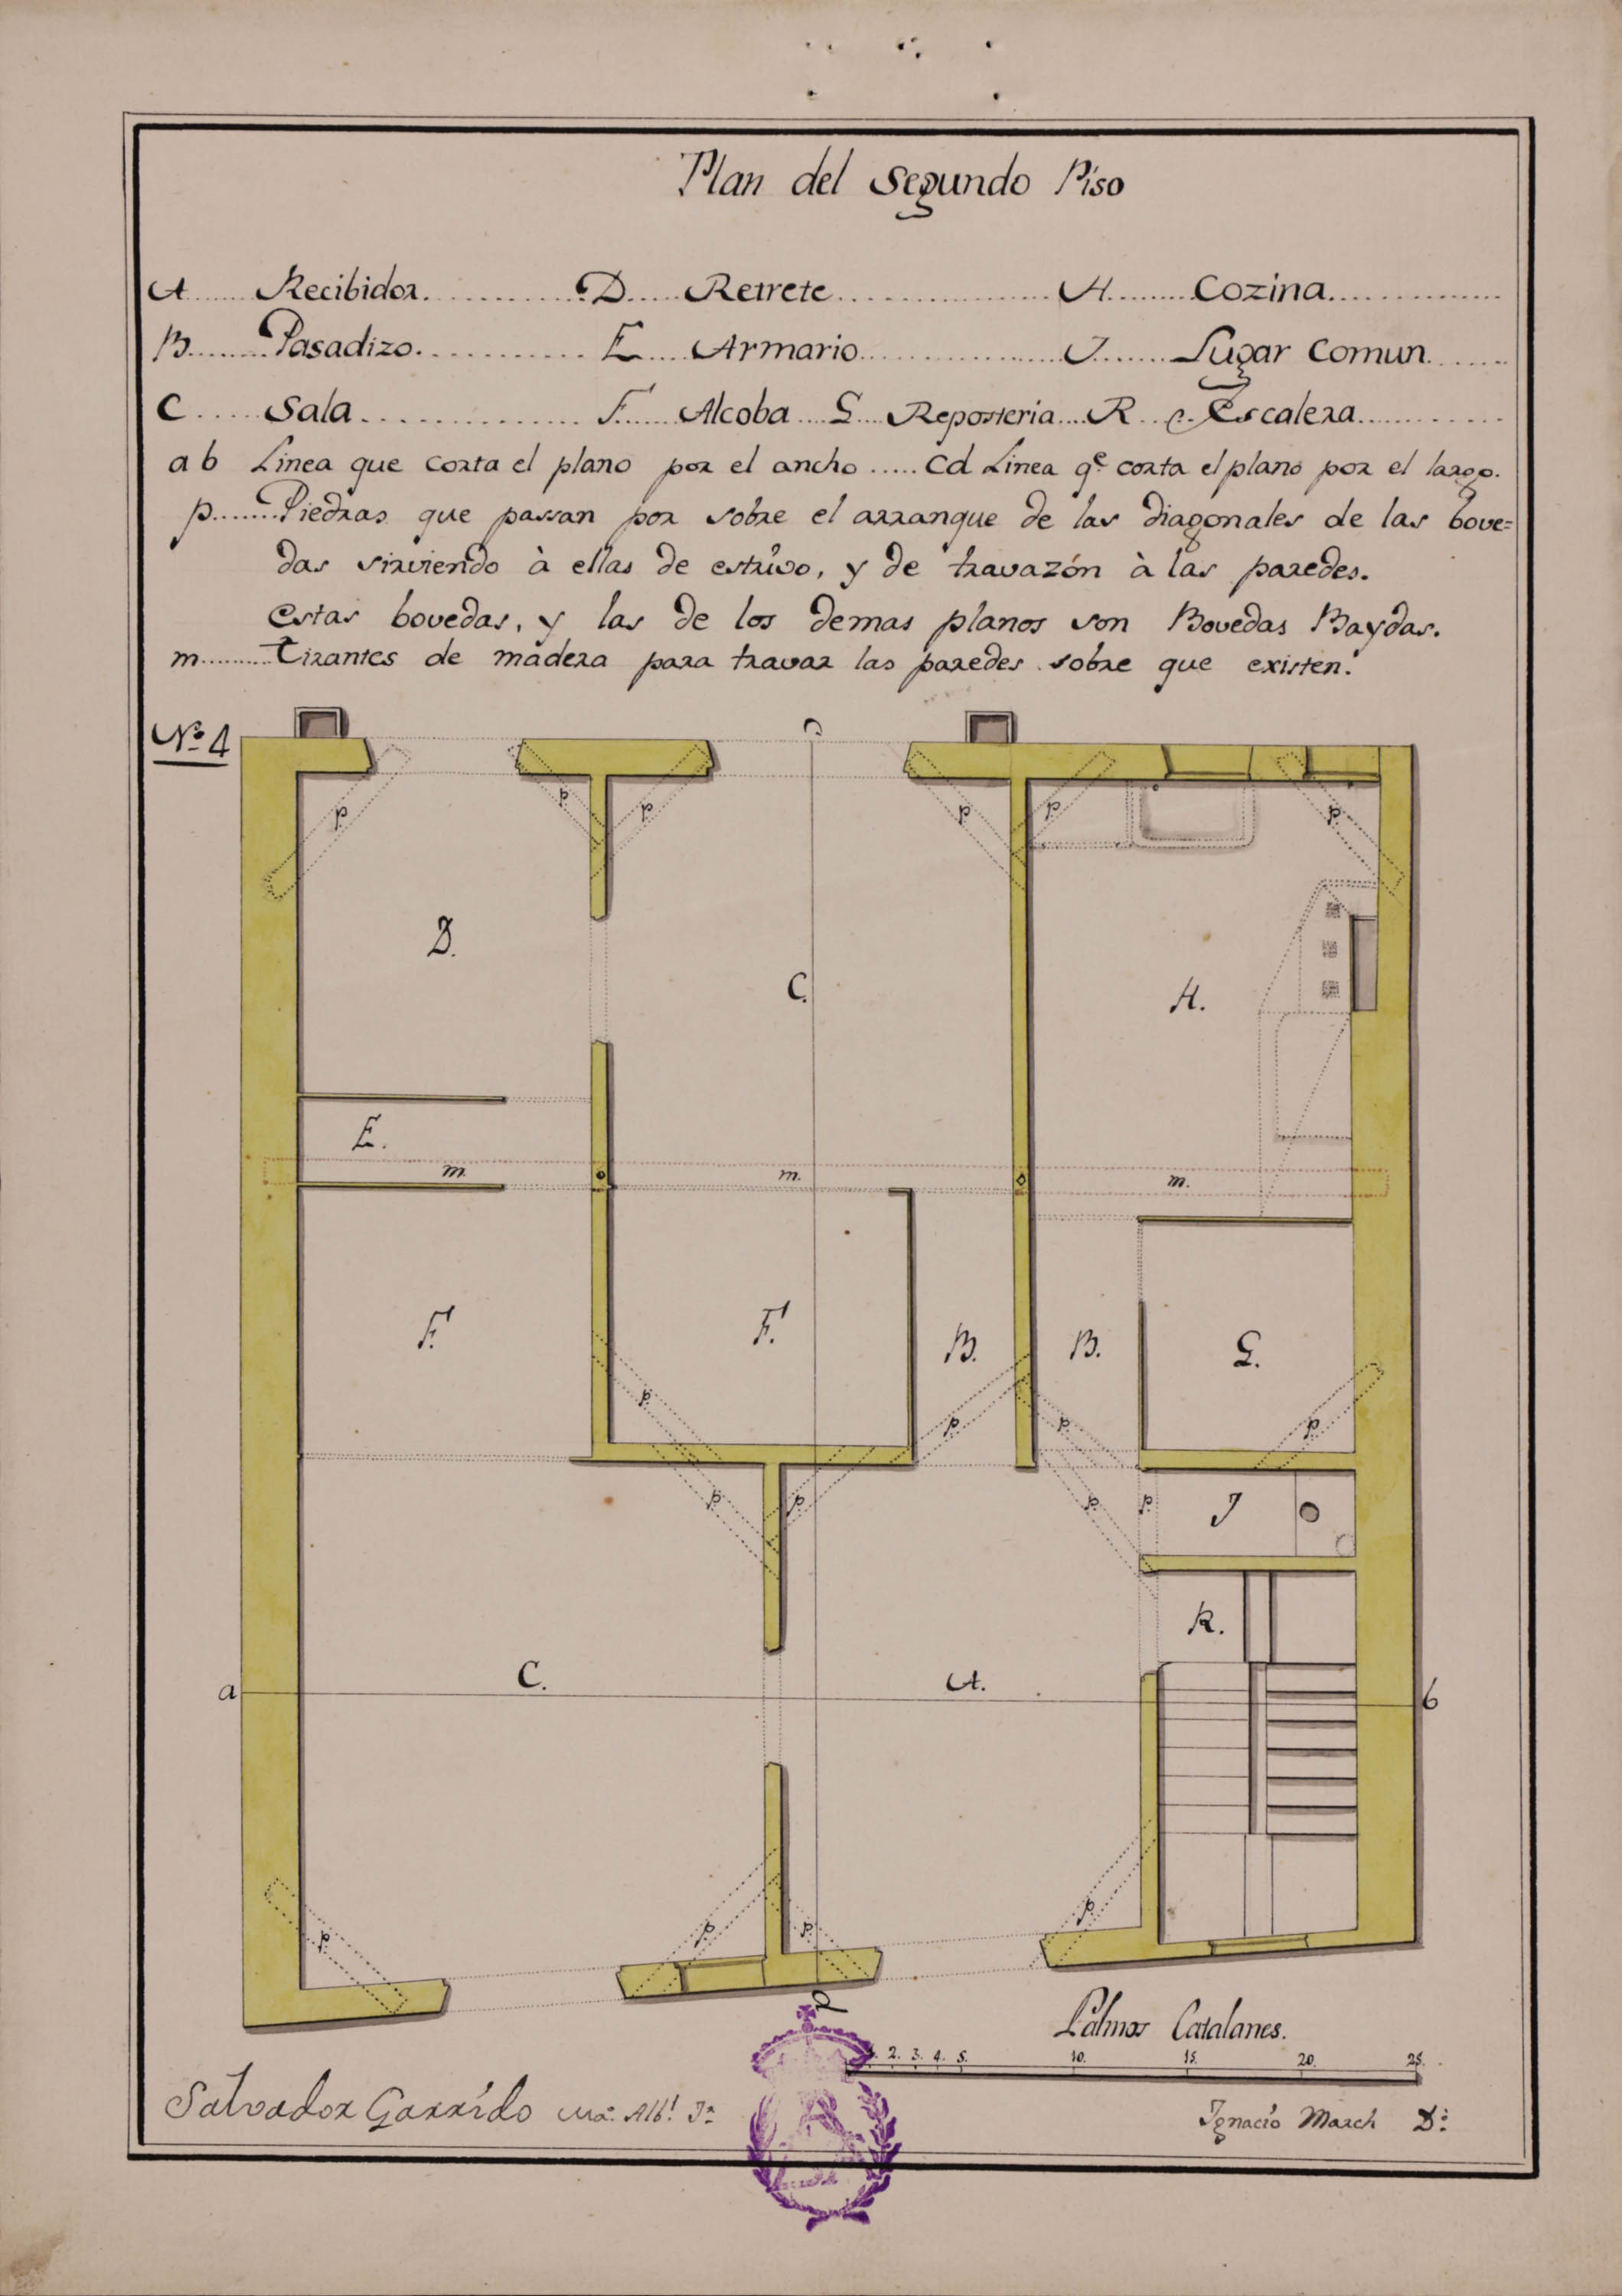 Plan del segundo Piso
A........Recibidor...............D......Retrete...................H.........Cozina...............
B.........Pasadizo.............E.....Armario..................J.......Lugar Comun.......
C.....Sala...............F.......Alcoba....G....Reposteria....R...Escalera............
a b Linea que corta el plano por el ancho.....Cd Linea qe corta el plano por el largo.
p........Piedras que passan por sobre el arranque de las diagonales de las bove=
das sirviendo à ellas de estrivo, y de travazón à las paredes.
estas bovedas, y las de los demas planos son Bovedas Baydas.
m..........Tirantes de madera para travar las paredes sobre que existen.
No 4
C
p. p. p. p. p. p.
D.
C.
H.
E.
m. m. m.
F. F. B. B. G.
p. p. p. p.
p. p. p. p. J
R.
a C. A. b
p. p. p. p.
d
Palmos Catalanes.
1. 2. 3. 4. 5. 10. 15. 20. 25.
Salvador Garrido Mro. Albl. Jn
Ignacio March Do